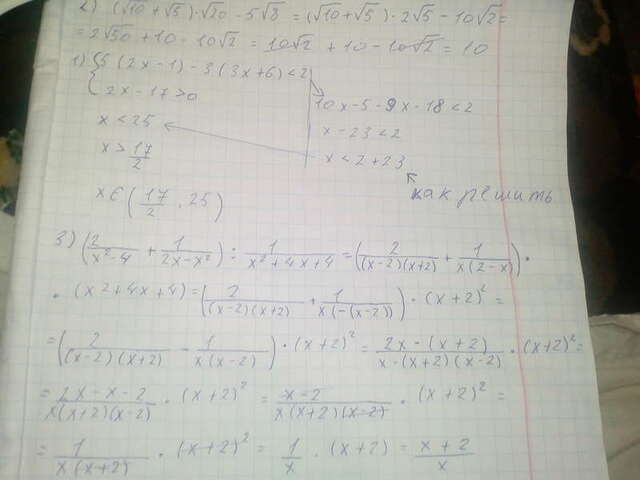 2) (√10 + √5) · √20 - 5√8 = (√10 + √5) · 2√5 - 10√2 =
= 2√50 + 10 - 10√2 = 10√2 + 10 - 10√2 = 10
1) { 5 (2x - 1) - 3 (3x + 6) < 2
2x - 17 > 0
x < 25
x > 17/2
x ∈ (17/2, 25)
10x - 5 - 9x - 18 < 2
x - 23 < 2
x < 2 + 23
как решить
3) (2/(x² - 4) + 1/(2x - x²)) : 1/(x² + 4x + 4) = (2/((x-2)(x+2)) + 1/(x(2-x))) ·
· (x2 + 4x + 4) = (2/((x-2)(x+2)) + 1/(x(-(x-2)))) · (x+2)² =
= (2/((x-2)(x+2)) - 1/(x(x-2))) · (x+2)² = (2x - (x+2))/(x·(x+2)(x-2)) · (x+2)² =
= (2x - x - 2)/(x(x+2)(x-2)) · (x+2)² = (x-2)/(x(x+2)(x-2)) · (x+2)² =
= 1/(x(x+2)) · (x+2)² = 1/x · (x+2) = (x+2)/x